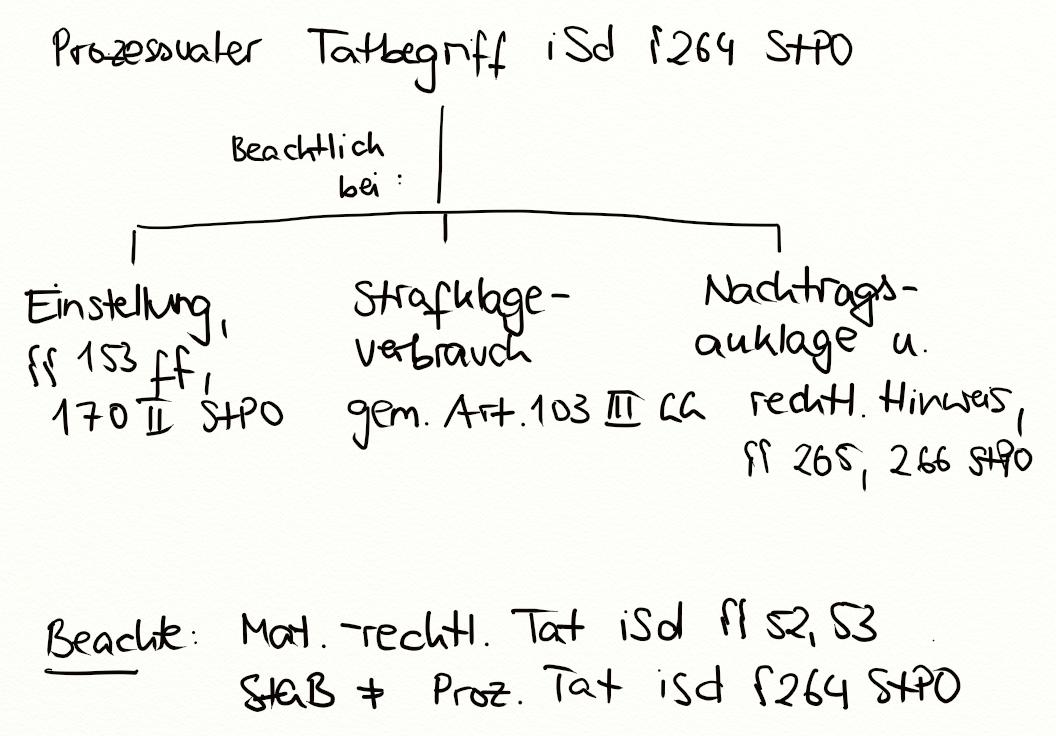 Prozessualer Tatbegriff iSd § 264 StPO
Beachtlich
bei :
Einstellung,
§§ 153 ff,
170 II StPO
Strafklage-
verbrauch
gem. Art. 103 III GG
Nachtrags-
anklage u.
rechtl. Hinweis,
§§ 265, 266 StPO
Beachte: Mat. -rechtl. Tat iSd §§ 52, 53
StGB ≠ Proz. Tat isd § 264 StPO